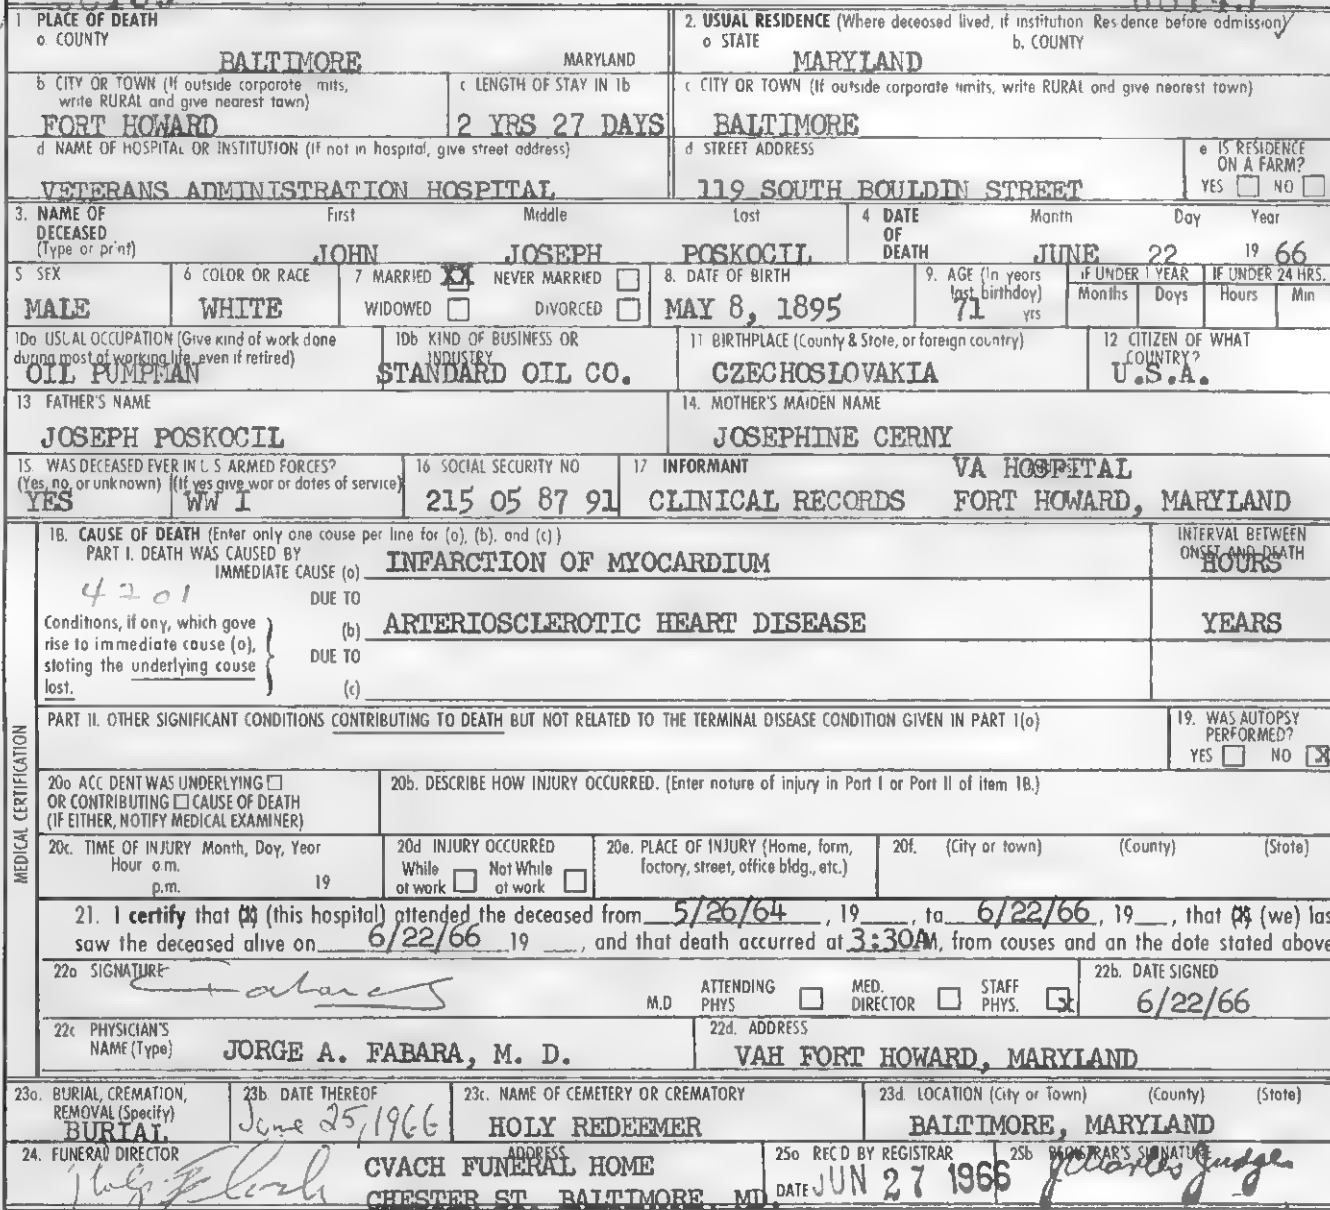 1 PLACE OF DEATH
a. COUNTY
BALTIMORE MARYLAND
2. USUAL RESIDENCE (Where deceased lived, if institution Residence before admission)
a STATE b. COUNTY
MARYLAND
b CITY OR TOWN (If outside corporate limits, write RURAL and give nearest town)
FORT HOWARD
c LENGTH OF STAY IN 1b
2 YRS 27 DAYS
c CITY OR TOWN (If outside corporate limits, write RURAL and give nearest town)
BALTIMORE
d NAME OF HOSPITAL OR INSTITUTION (If not in hospital, give street address)
VETERANS ADMINISTRATION HOSPITAL
d STREET ADDRESS
119 SOUTH BOULDIN STREET
e IS RESIDENCE ON A FARM?
YES NO
3. NAME OF DECEASED (Type or print)
First Middle Last
JOHN JOSEPH POSKOCIL
4 DATE OF DEATH
Month Day Year
JUNE 22 19 66
5 SEX
MALE
6 COLOR OR RACE
WHITE
7 MARRIED XX NEVER MARRIED
WIDOWED DIVORCED
8. DATE OF BIRTH
MAY 8, 1895
9. AGE (In years last birthday)
71 yrs
IF UNDER 1 YEAR
Months Days
IF UNDER 24 HRS.
Hours Min
10a USUAL OCCUPATION (Give kind of work done during most of working life, even if retired)
OIL PUMPMAN
10b KIND OF BUSINESS OR INDUSTRY
STANDARD OIL CO.
11 BIRTHPLACE (County & State, or foreign country)
CZECHOSLOVAKIA
12 CITIZEN OF WHAT COUNTRY?
U.S.A.
13 FATHER'S NAME
JOSEPH POSKOCIL
14. MOTHER'S MAIDEN NAME
JOSEPHINE CERNY
15. WAS DECEASED EVER IN U S ARMED FORCES?
(Yes, no, or unknown) (If yes give war or dates of service)
YES WW I
16 SOCIAL SECURITY NO
215 05 87 91
17 INFORMANT
VA HOSPITAL
CLINICAL RECORDS FORT HOWARD, MARYLAND
MEDICAL CERTIFICATION
18. CAUSE OF DEATH (Enter only one cause per line for (a), (b), and (c))
PART I. DEATH WAS CAUSED BY
IMMEDIATE CAUSE (a) INFARCTION OF MYOCARDIUM
INTERVAL BETWEEN ONSET AND DEATH
HOURS
4201
DUE TO
Conditions, if any, which gave rise to immediate cause (a), stating the underlying cause last.
(b) ARTERIOSCLEROTIC HEART DISEASE YEARS
DUE TO
(c)
PART II. OTHER SIGNIFICANT CONDITIONS CONTRIBUTING TO DEATH BUT NOT RELATED TO THE TERMINAL DISEASE CONDITION GIVEN IN PART I(a)
19. WAS AUTOPSY PERFORMED?
YES NO X
20a ACCIDENT WAS UNDERLYING
OR CONTRIBUTING CAUSE OF DEATH
(IF EITHER, NOTIFY MEDICAL EXAMINER)
20b. DESCRIBE HOW INJURY OCCURRED. (Enter nature of injury in Part I or Part II of item 18.)
20c. TIME OF INJURY Month, Day, Year
Hour a.m.
p.m. 19
20d INJURY OCCURRED
While at work Not While at work
20e. PLACE OF INJURY (Home, farm, factory, street, office bldg., etc.)
20f. (City or town) (County) (State)
21. I certify that (X) (this hospital) attended the deceased from 5/26/64, 19 , to 6/22/66, 19 , that (X) (we) las
saw the deceased alive on 6/22/66 19 , and that death occurred at 3:30AM, from causes and on the date stated above
22a SIGNATURE
Fabara M.D
ATTENDING PHYS MED. DIRECTOR STAFF PHYS. X
22b. DATE SIGNED
6/22/66
22c PHYSICIAN'S NAME (Type)
JORGE A. FABARA, M. D.
22d. ADDRESS
VAH FORT HOWARD, MARYLAND
23a. BURIAL, CREMATION, REMOVAL (Specify)
BURIAL
23b. DATE THEREOF
June 25, 1966
23c. NAME OF CEMETERY OR CREMATORY
HOLY REDEEMER
23d. LOCATION (City or Town) (County) (State)
BALTIMORE, MARYLAND
24. FUNERAL DIRECTOR
ADDRESS
CVACH FUNERAL HOME
CHESTER ST. BALTIMORE, MD.
25a REC'D BY REGISTRAR
DATE JUN 27 1966
25b REGISTRAR'S SIGNATURE
Charles Judge